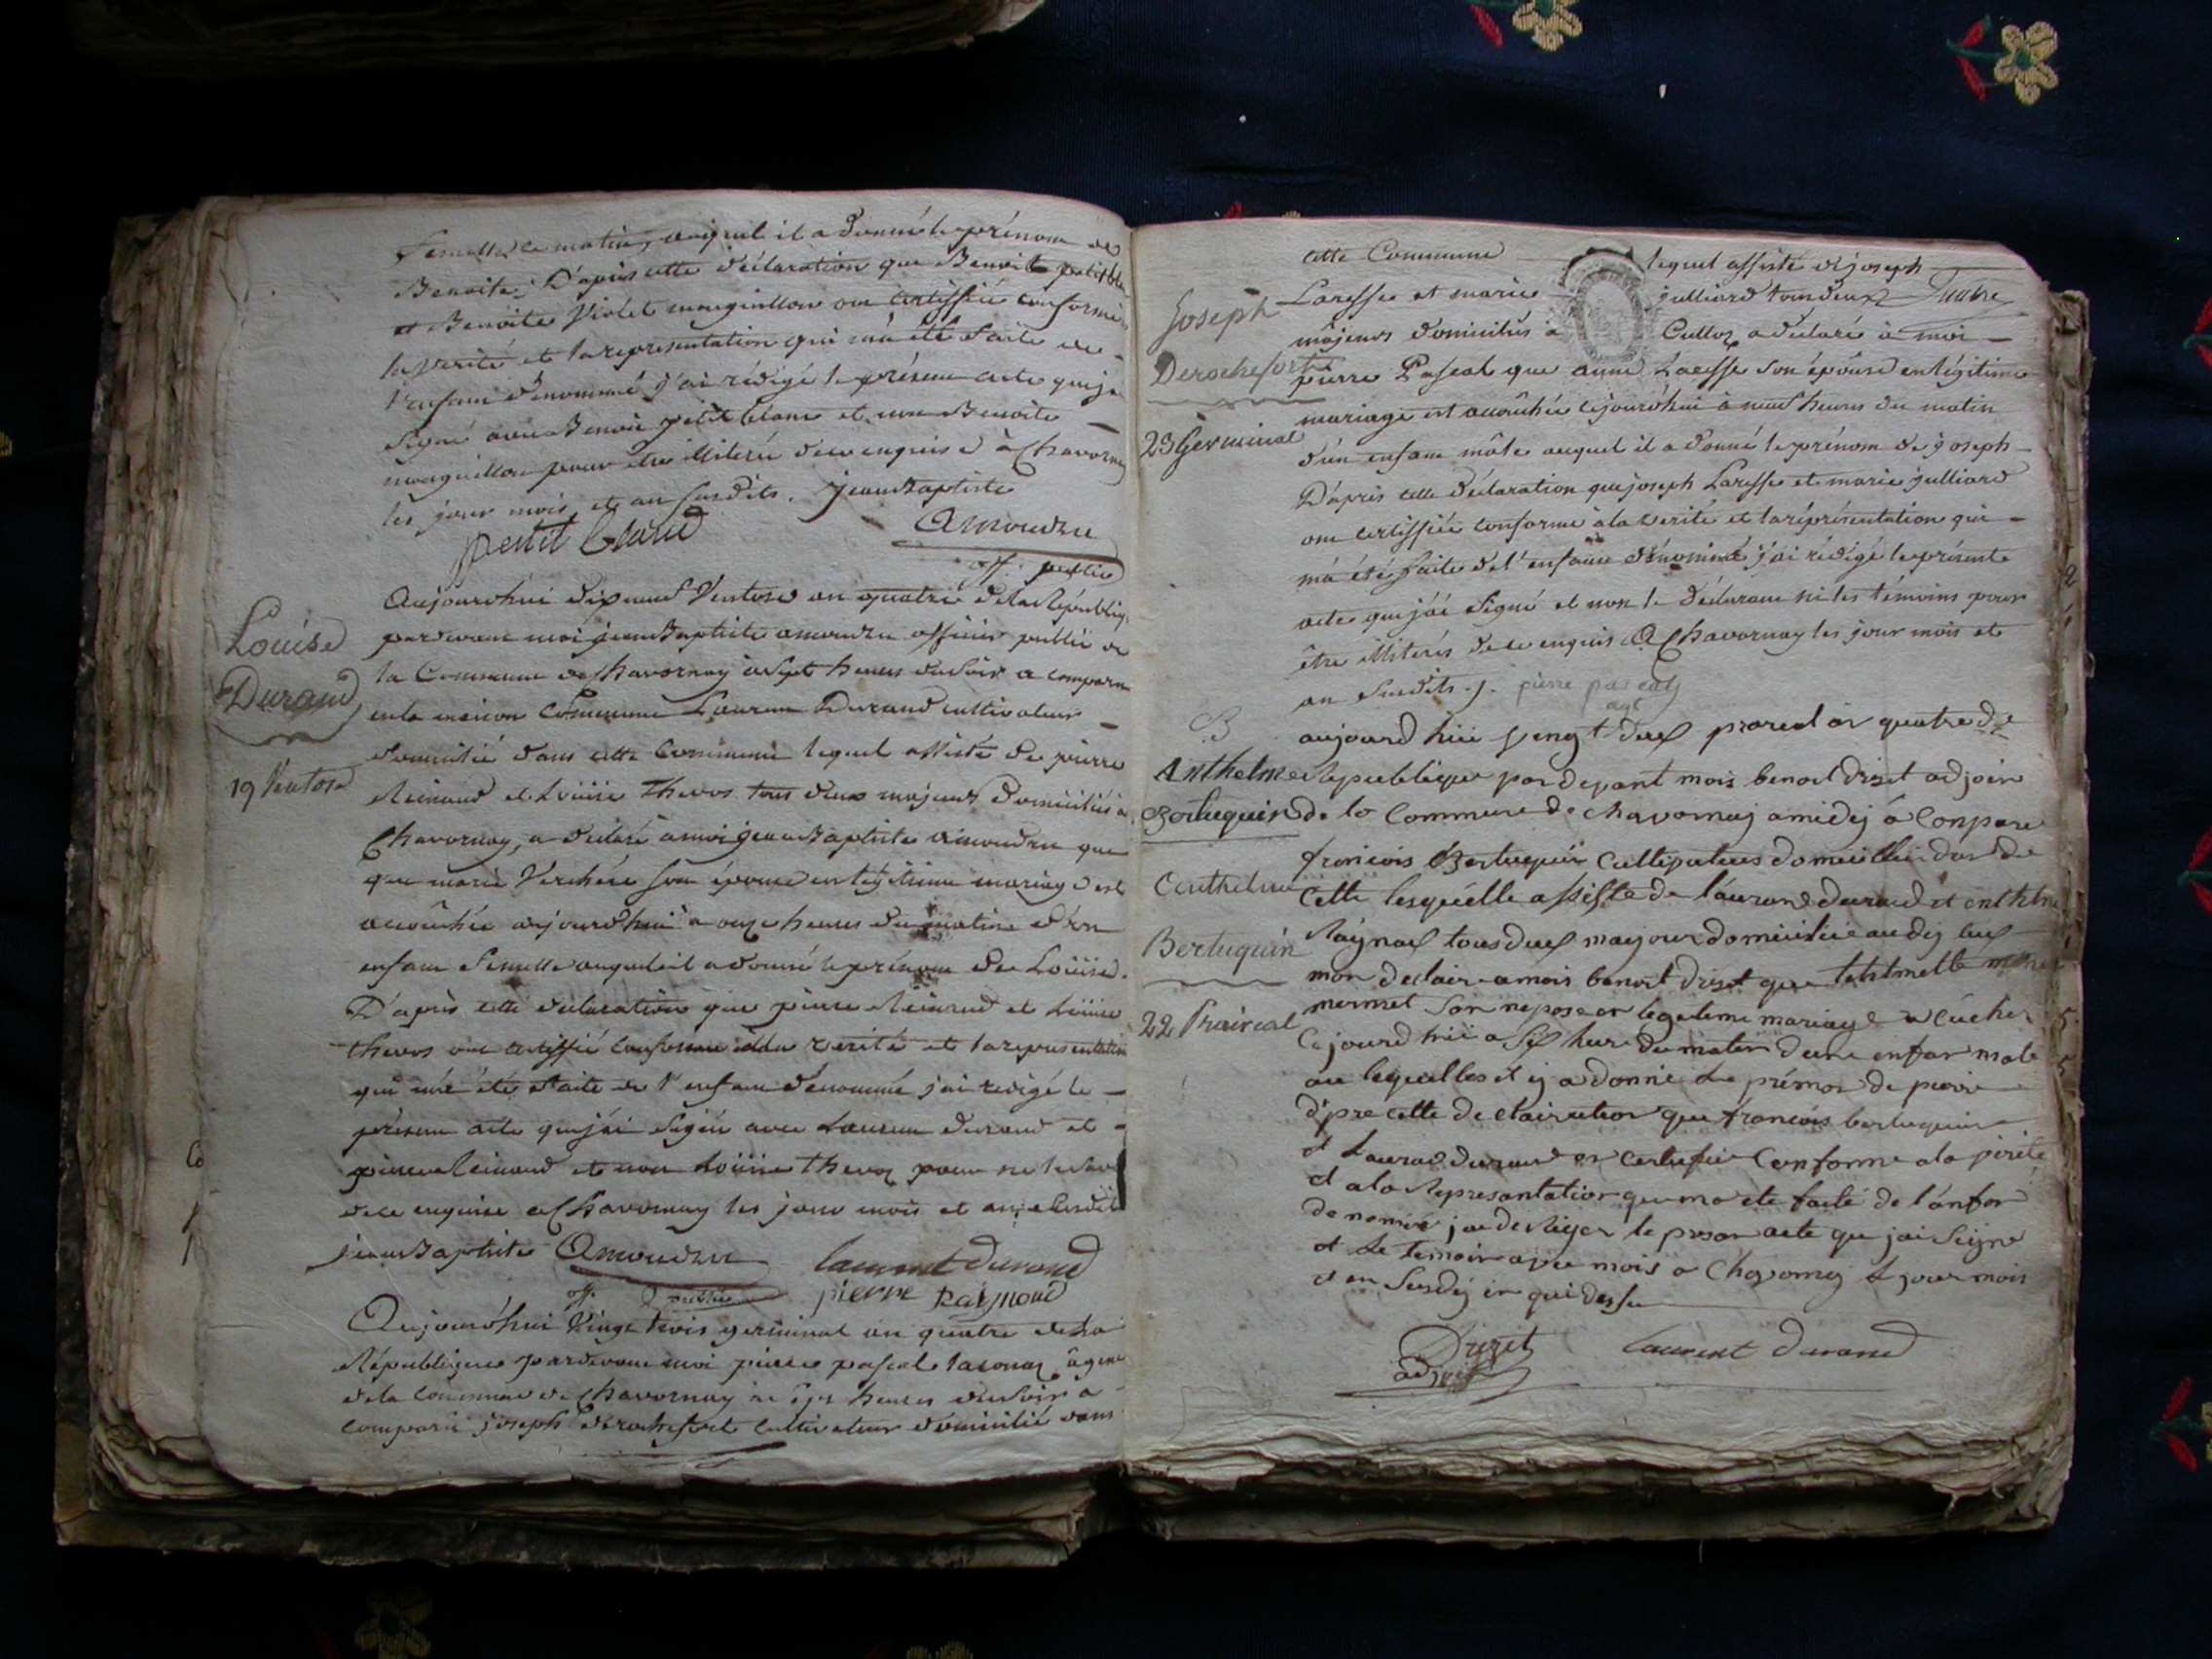 femelle ce matin, auquel il a donné le prénom de
Benoite; D'après cette déclaration que Benoit petit blanc
et Benoite Violet mouguillon ont certiffiée conforme à
la verité et la representation qui m'a été faite de
l'enfant dénommé j'ai rédigé le présent acte que j'ai
signé avec Benoit petit blanc et non Benoite
mouguillon pour etre illiterée de ce enquise à Chavornay
les jour mois et an susdits. Jean Baptiste
petit blanc
Amoudru
off. public
Louise
Durand
19 Ventose
Aujourdhui dixneuf Ventose an quatre de la Républiq.
pardevant moi jean Baptiste amoudru officier public de
la Commune de Chavornay à sept heures du soir a comparu
en la maison Commune Laurent Durand cultivateur
domicilié dans cette Commune lequel assisté de pierre
Reinaud et Louise Thevos tous deux majeurs domiciliés à
Chavornay, a déclaré à moi jean Baptiste amoudru que
que marie Verchére son épouse en légitime mariage est
accouchée aujourdhui à onze heures du matin d'un
enfant femelle auquel il a donné le prénom de Louise.
D'après cette déclaration que pierre Reinaud et Louise
thevos ont certiffié conforme à la verité et la representation
qui m'a été faite de l'enfant dénommé j'ai redigé le
présent acte que j'ai signé avec Laurent durand et
pierre Reinaud et non Louise thevoz pour ne le savoir
de ce enquise à Chavornay les jour mois et an susdit
jean Baptiste Amoudru
laurent durand
off. public
pierre Raynaud
Aujourdhui Vingt trois germinal an quatre de la
République pardevant moi pierre pascal agent
de la Commune de Chavornay à six heures du soir a
comparu joseph derochefort cultivateur domicilié dans
Joseph
Derochefort
23 Germinal
cette Commune lequel assisté de joseph
Laresse et marie julliard tous deux
majeurs domiciliés à Culloz a déclaré à moi
pierre Pascal que anne Laresse son épouse en légitime
mariage est accouchée cejourdhui à neuf heures du matin
d'un enfant mâle auquel il a donné le prénom de joseph
D'après cette déclaration que joseph Laresse et marie julliard
ont certiffiée conforme à la verité et la réprésentation qui
m'a été faite de l'enfant dénommé j'ai rédigé le présente
acte que j'ai signé et non le déclarant ni les témoins pour
être illiterés de ce enquis A Chavornay les jour mois et
an susdits ./. pierre pascal
agt
B
Anthelme
Bertuquin
Centhelme
Bertuquin
22 Prairial
aujourd hui vengt deux prereal an quatre de
Republique par devant mois benoit drizet adjoin
de la Commune de Chavornay a midy a Conpare
francois Bertuquin Cultivateur domicillié dan de
Cette lesquelle assiste de laurand durand et enthelme
Raynau tous deux majour domicilié au dy lieu
mon declaire a mois benoit drizet que
mermet son nepose en legeteme mariage a cuche
Cejourd hui a six hure du maten d'une enfan male
au lequelles il y a donné le prémon de pierre
d'pre cette declairation que francois bertuquin
et Laurand durand on certufie Conforme a la virite
et a la Represantation que ma ete faite de lanfan
denommé jae de Riger le presan acte que jai Seigne
et le temoin avec mois a Chavornay le jour mois
et en susdy en qui dessu
Drizet
adjoint
laurent durand